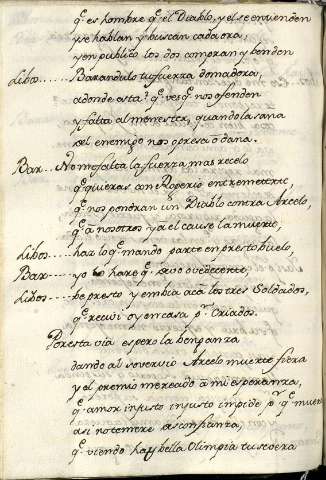 q̃ es hombre q̃ el Diablo, y el se entienden
y se hablan y buscan cada ora,
y en publico los dos compran y benden
Libo...... Barandulo tu fuerza domadora,
adonde esta? q̃ ves q̃ nos ofenden
y falta al menester, quando la saña
del enemigo nos opresa ó daña.
Bar... No me falta la fuerza mas recelo
q̃ quieras con Rogerio entremeterte,
q̃ nos pondran un Diablo contra Arcelo,
q̃ á nosotros y a el cause la muerte;
Libo... haz lo q̃ mando parte en presto buelo,
Bar.... yo lo hare q̃ devo ovedecerte,
Libo.... be presto y embia acá los tres Soldados,
q̃ recivi oy en casa p.r Criados.
Por esta via espero la benganza
dando al sovervio Arcelo muerte fiera
y el premio mercado á mi esperanza,
q̃ amor injusto injusto impide p.r q̃ muera
asi no temere a confianza,
q̃ viendo la bella Olimpia tu